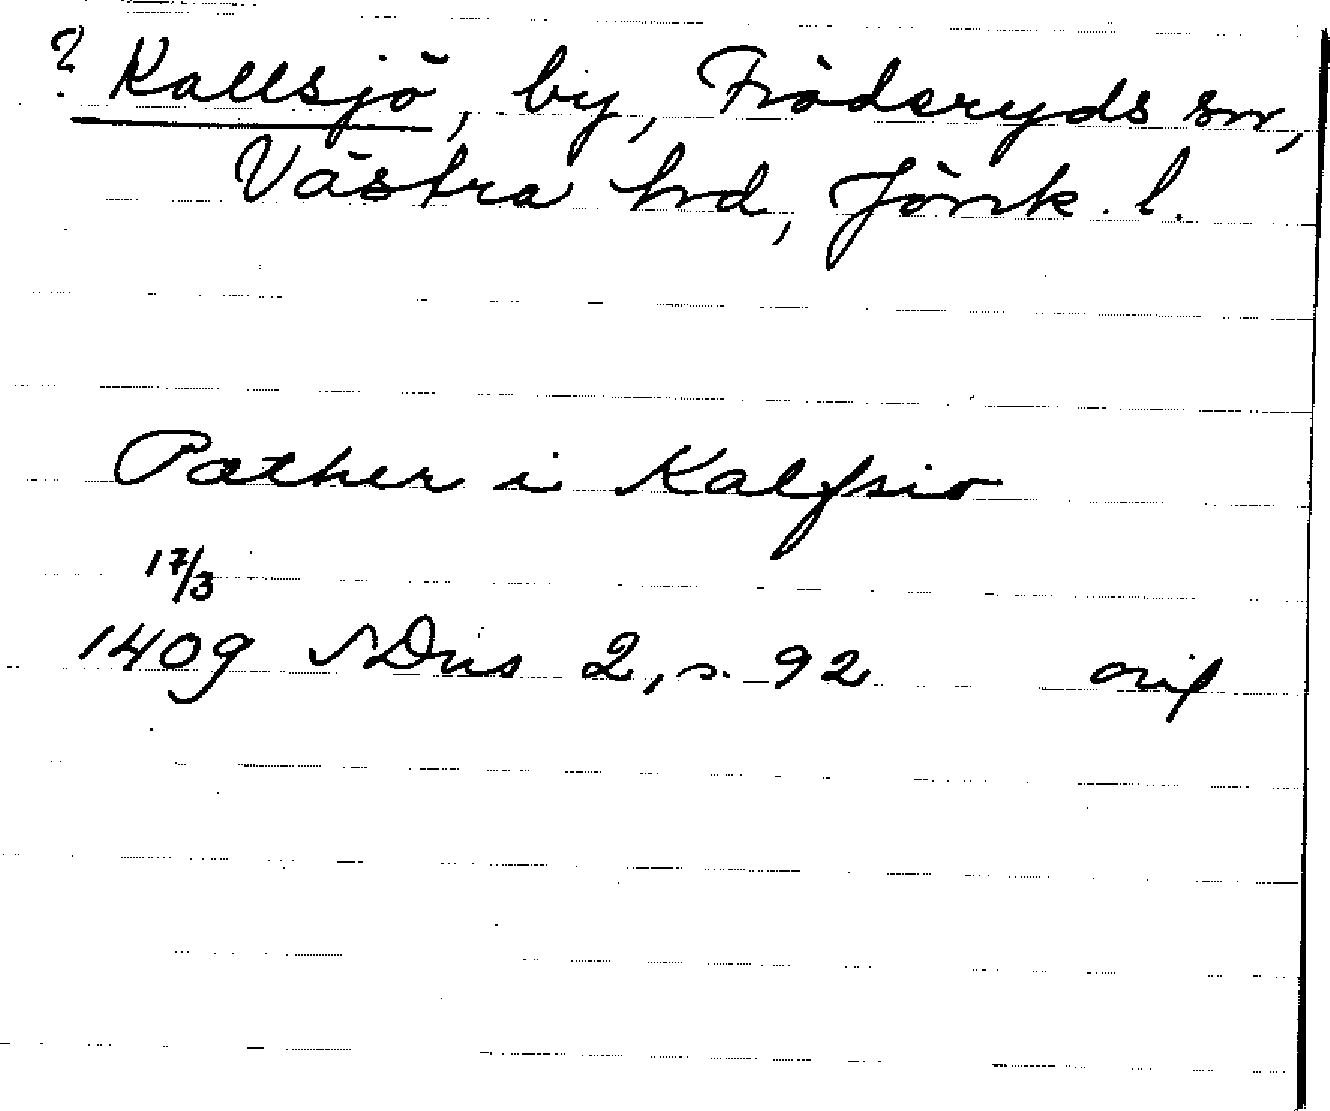 ? Kallsjö, by, Fröderyds sn,
Västra hd, Jönk. l.
Pæther i Kalfsio
17/3
1409 SDns 2, s. 92 orig